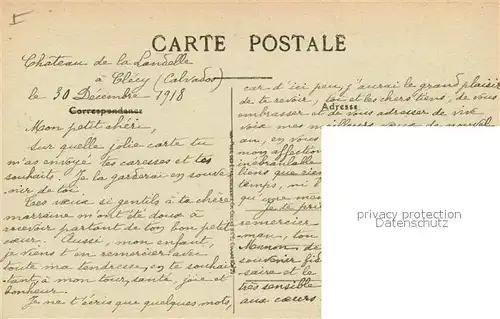 CARTE POSTALE
Chateau de la Landelle
à Clécy (Calvados)
le 30 Décembre 1918
Correspondance
Mon petit chéri,
Sur quelle jolie carte tu
m'as envoyé tes caresses et tes
souhaits. Je la garderai en souve-
nir de toi.
Tes vœux si gentils à ta chère
marraine m'ont été doux à
recevoir partant de ton bon petit
cœur. Aussi, mon enfant,
je viens t'en remercier avec
toute ma tendresse, en te souhai-
tant, à mon tour, santé, joie et
bonheur.
Je ne t'écris que quelques mots,
car d'ici peu, j'aurai le grand plaisir
de te revoir, toi et les chers tiens, de vous
Adresse
embrasser et de vous adresser de vive
voix mes meilleurs vœux de nouvel
an, en vous
mon affection
inébranlable
tiens que rien
temps, ni
qu'une
Je te prie
remercier
man, ton
de
souvenir
saire et le
très sensible
aux cœurs
privacy protection
AnsichtskartenHandel.de